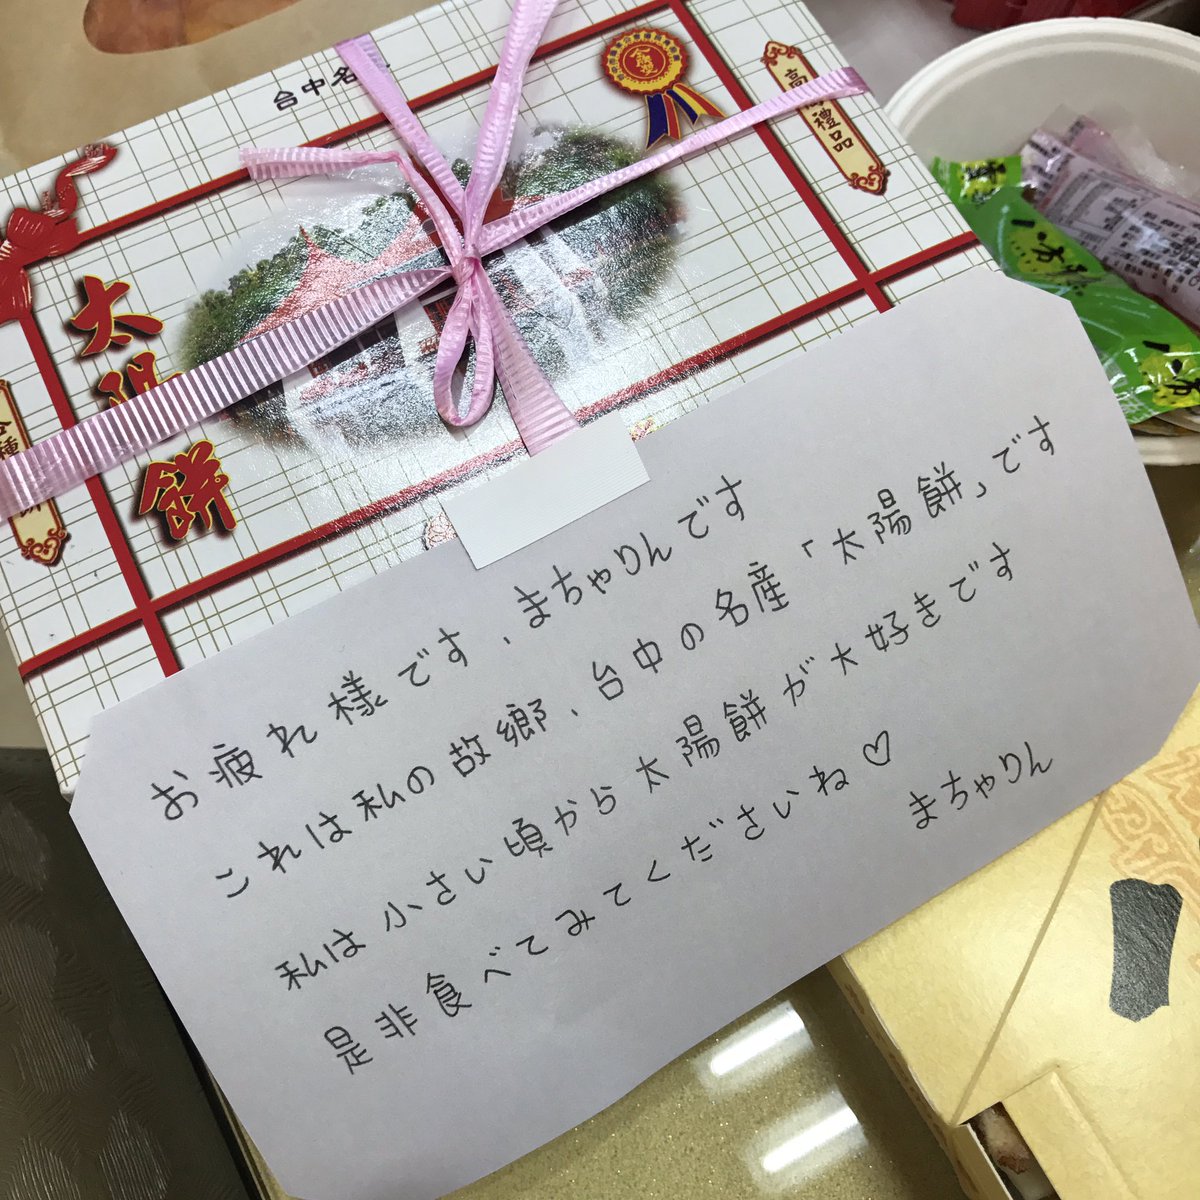 台中名
太陽餅
禮品
お疲れ様です、まちゃりんです
これは私の故郷、台中の名産「太陽餅」です
私は小さい頃から太陽餅が大好きです
是非食べてみてくださいね♡
まちゃりん